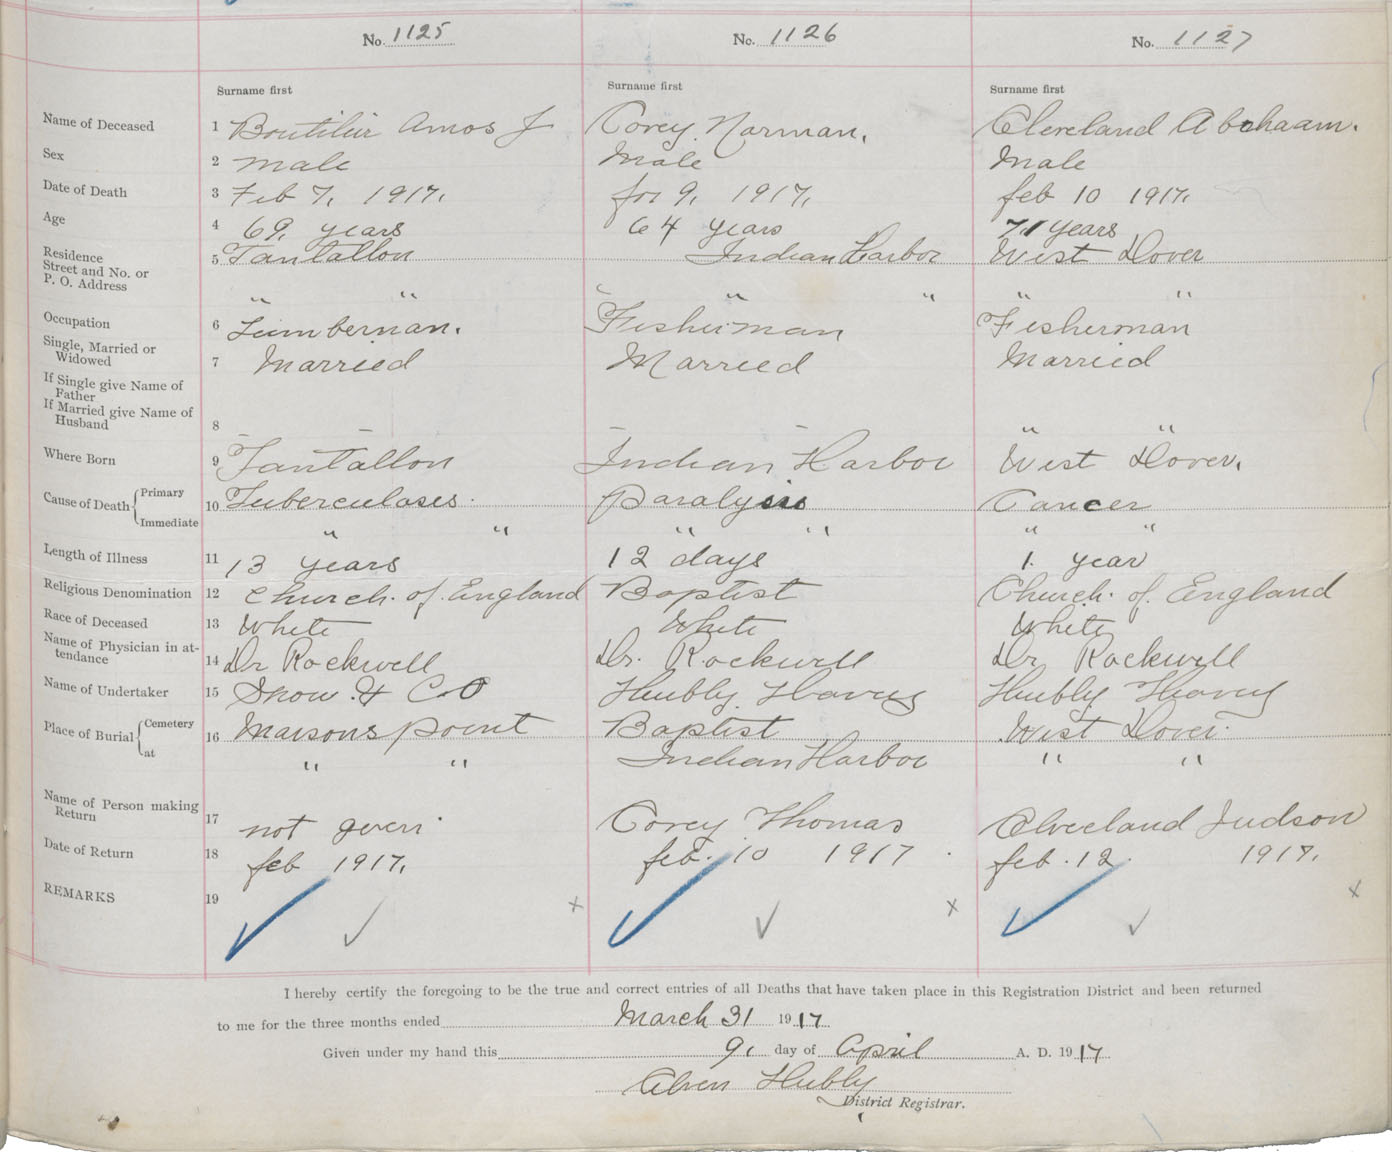 No. 1125 No. 1126 No. 1127
Surname first Surname first Surname first
Name of Deceased 1 Boutilier Amos J Corey Norman. Cleveland Abohaam.
Sex 2 male Male Male
Date of Death 3 Feb 7, 1917. 9, 1917. feb 10 1917.
Age 4 69, years 64 years 71 years
Residence
Street and No. or
P. O. Address 5 Tantallon Indian Harbor West Dover
" " " " " "
Occupation 6 Lumberman. Fisherman Fisherman
Single, Married or
Widowed 7 Married Married Married
If Single give Name of
Father
If Married give Name of
Husband 8 " "
Where Born 9 Tantallon Indian Harbor West Dover.
Cause of Death Primary
Immediate 10 Tuberculoses. Paralysis Cancer
" " " " " "
Length of Illness 11 13 years 12 days 1. year
Religious Denomination 12 Church. of. England Baptist Church. of. England
Race of Deceased 13 White White White
Name of Physician in at-
tendance 14 Dr Rockwell Dr. Rockwell Dr Rockwell
Name of Undertaker 15 Snow & CO Hubly Harvey Hubly Harvey
Place of Burial Cemetery
at 16 Masons point Baptist West Dover.
" " Indian Harbor " "
Name of Person making
Return 17 not given Corey Thomas Cleveland Judson
Date of Return 18 feb 1917. feb. 10 1917. feb. 12. 1917.
REMARKS 19
x x x
I hereby certify the foregoing to be the true and correct entries of all Deaths that have taken place in this Registration District and been returned
to me for the three months ended March 31 1917
Given under my hand this 9, day of April A. D. 1917
Alven Hubly
District Registrar.